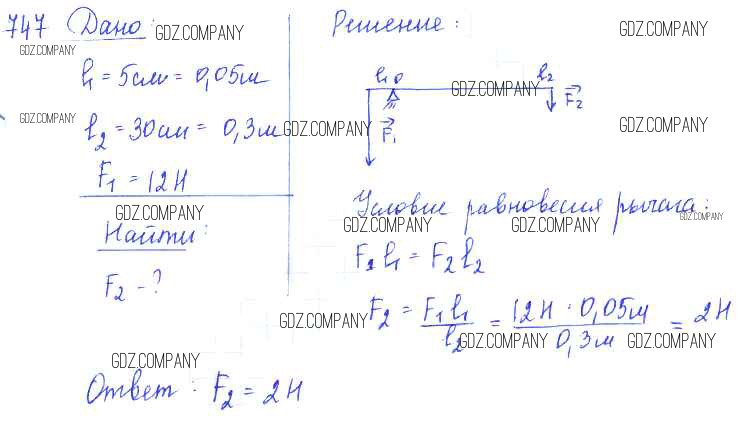 747 Дано: GDZ.COMPANY
GDZ.COMPANY
l₁ = 5см = 0,05м
GDZ.COMPANY
l₂ = 30см = 0,3м GDZ.COMPANY
F₁ = 12Н
GDZ.COMPANY
Найти:
F₂ - ?
GDZ.COMPANY
GDZ.COMPANY
Решение: GDZ.COMPANY
l₁ 0 l₂
GDZ.COMPANY F₂
F₁ GDZ.COMPANY
Условие равновесия рычага: GDZ.COMPANY
GDZ.COMPANY GDZ.COMPANY
F₁ l₁ = F₂ l₂
F₂ = F₁ l₁ / l₂ = 12Н · 0,05м / 0,3м = 2Н
GDZ.COMPANY GDZ.COMPANY
Ответ: F₂ = 2Н